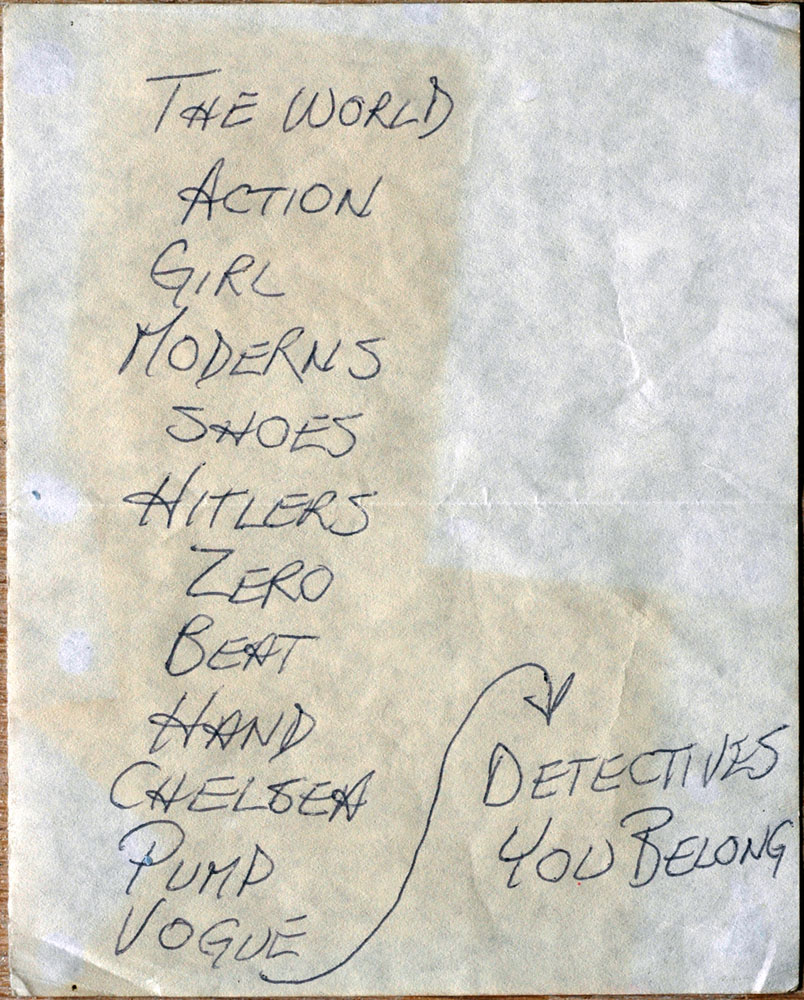 THE WORLD
ACTION
GIRL
MODERNS
SHOES
HITLERS
ZERO
BEAT
HAND
CHELSEA
PUMP
VOGUE
DETECTIVES
YOU BELONG